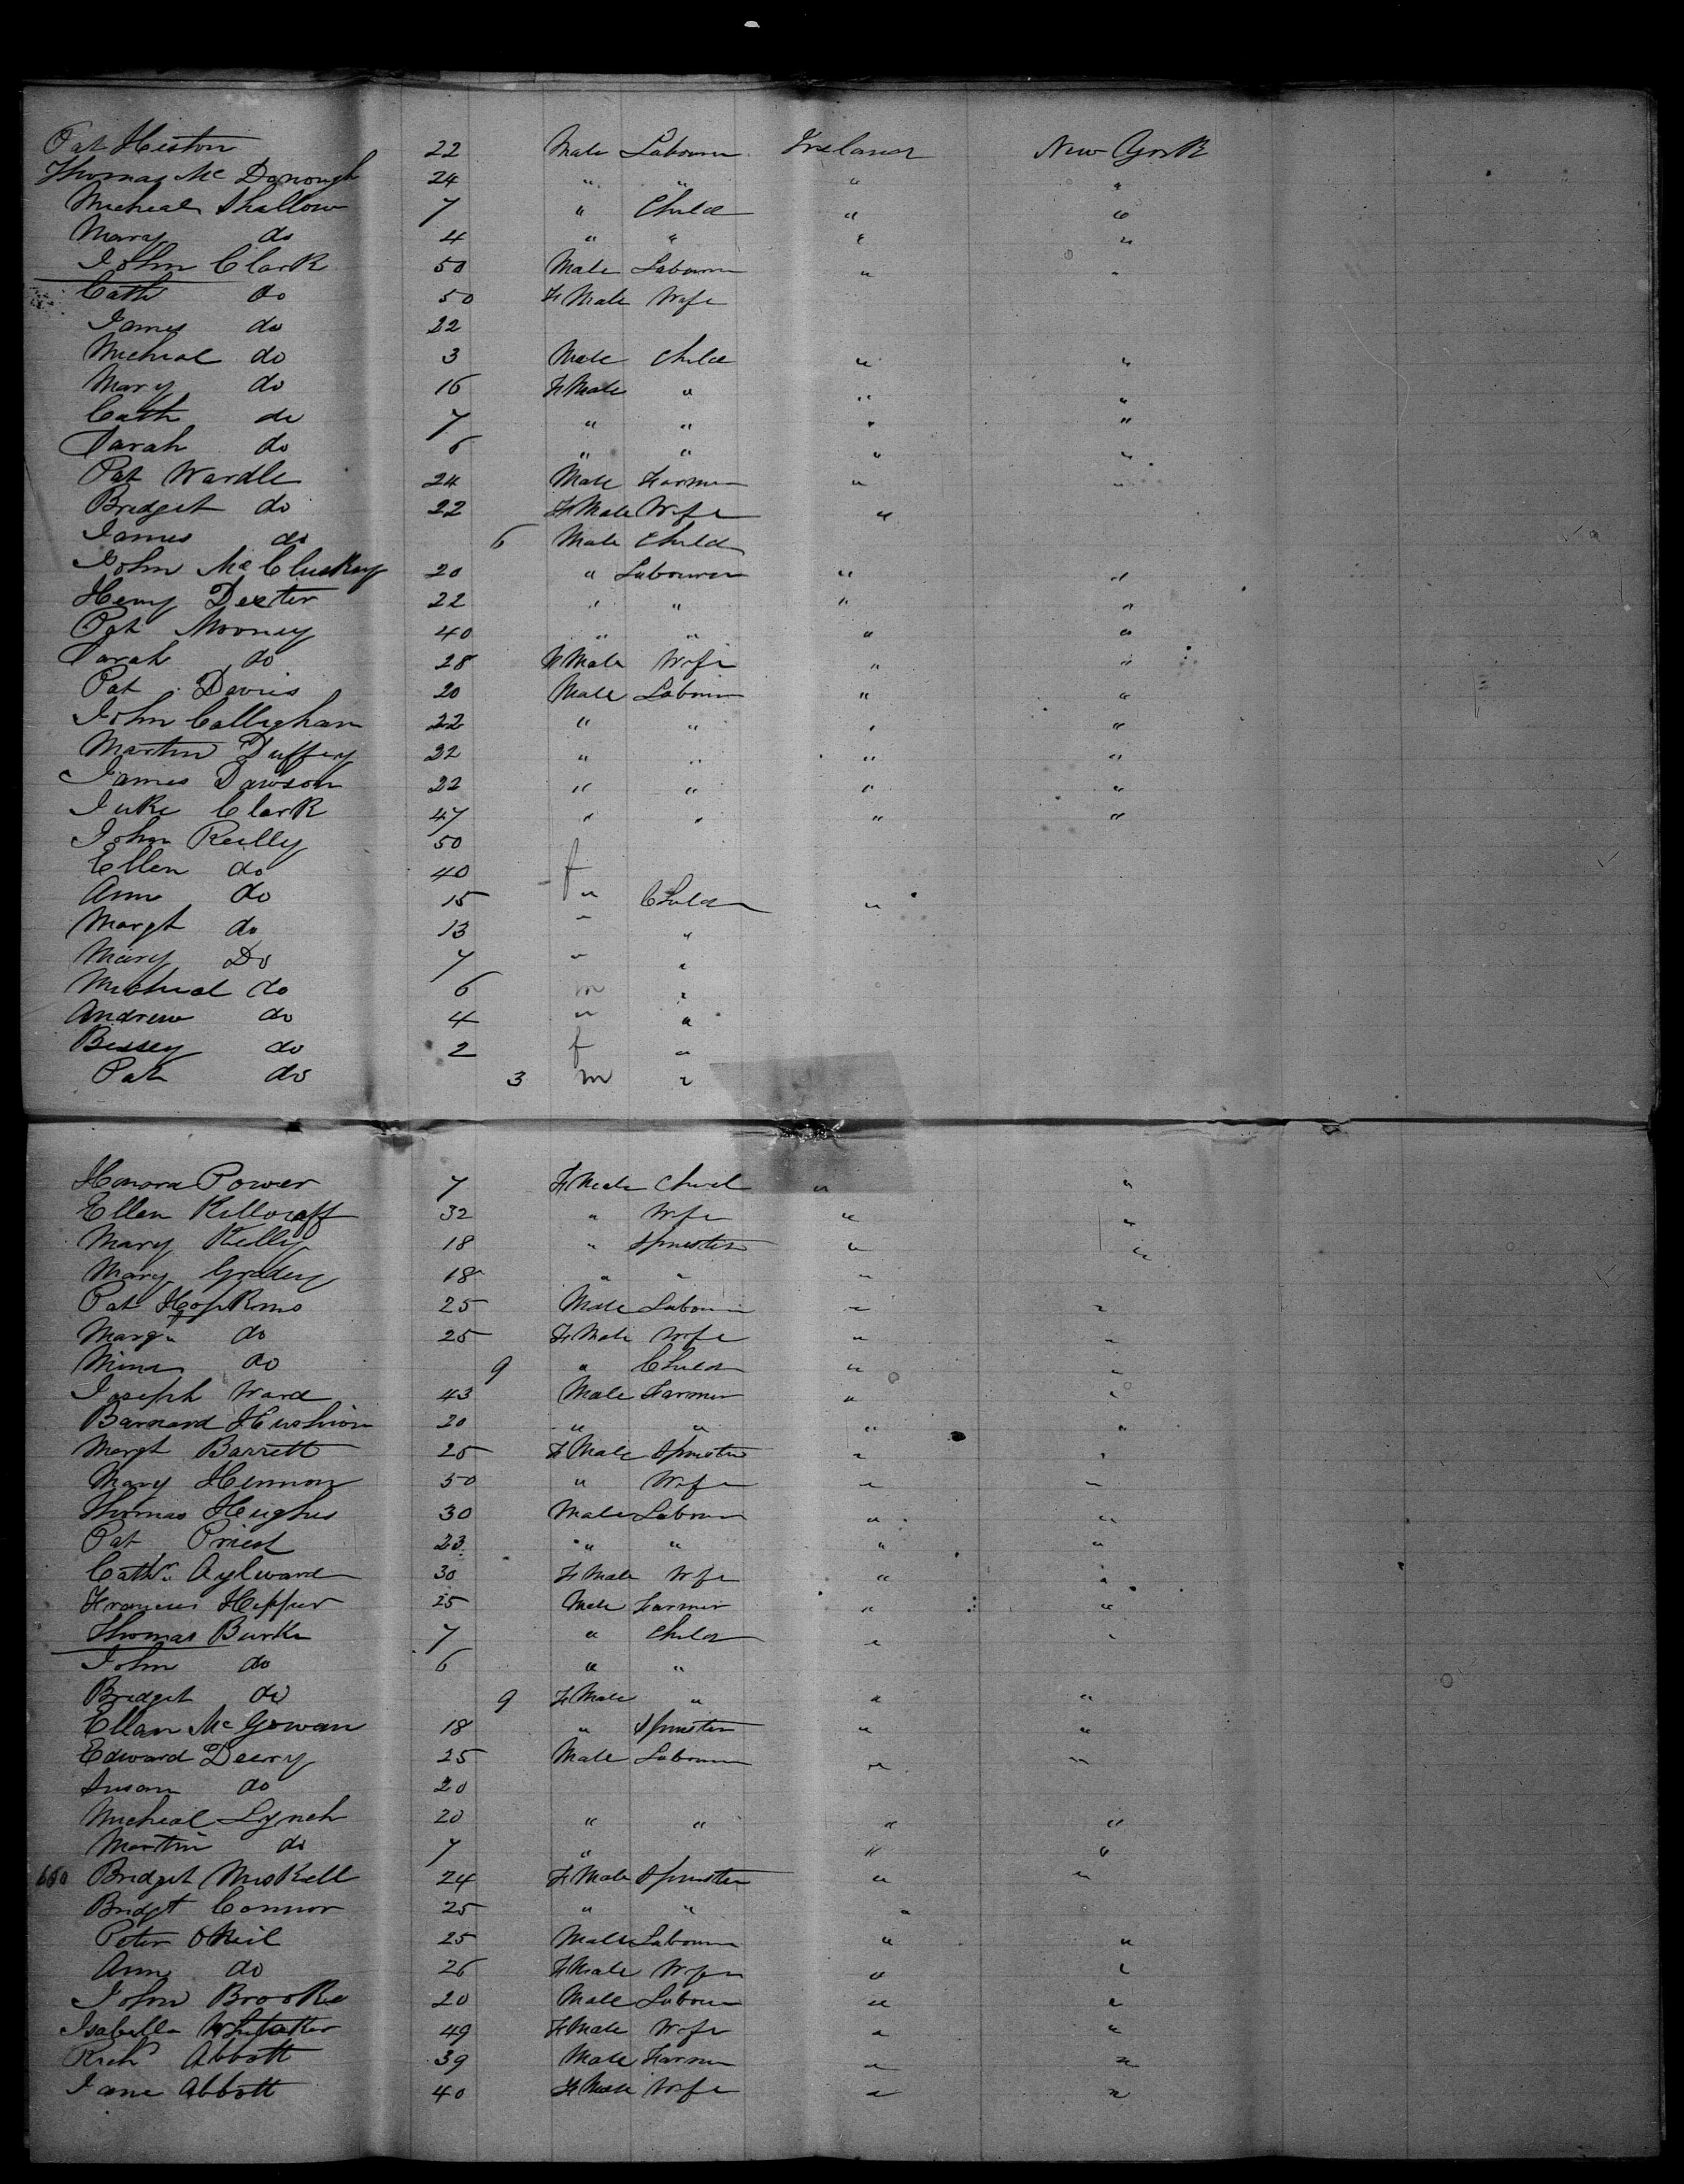 Pat Heston 22 Male Labourer Ireland New York
Thomas Mc Donough 24 " " " "
Micheal Shallow 7 " Child " "
Mary do 4 " " " "
John Clark 50 Male Labourer " "
Cath do 50 FMale Wife
James do 22
Micheal do 3 Male Child " "
Mary do 16 FMale " " "
Cath do 7 " " " "
Sarah do 6 " " " "
Pat Wardle 24 Male Farmer " "
Bridget do 22 FMale Wife "
James do 6 Male Child
John Mc Cluskey 20 " Labourer " "
Henry Dexter 22 " " " "
Pat Mooney 40 " " " "
Sarah do 28 FMale Wife " "
Pat Davis 20 Male Labourer " "
John Callighan 22 " " " "
Martin Duffey 22 " " " "
James Dawson 22 " " " "
Luke Clark 47 " " " "
John Reilly 50
Ellen do 40 f
Ann do 15 " Child "
Margt do 13 " "
Mary Do 7 " "
Micheal do 6 m "
Andrew do 4 " "
Bessey do 2 f "
Pat do 3 m "
Honora Power 7 FMale Child " "
Ellen 32 " Wife " "
Mary Kelly 18 " Spinster " "
Mary Gradey 18 " " "
Pat Hopkins 25 Male Labourer " "
Marg do 25 FMale Wife " "
do 9 " Child " "
Joseph Ward 43 Male Farmer " "
Barnard 20 " " " "
Margt Barrett 25 FMale Spinster " "
Mary 50 " Wife " "
Thomas Heughs 30 Male Labourer " "
Pat Priest 23 " " " "
Cathr. Aylward 30 FMale Wife " "
Francis 25 Male Farmer " "
Thomas Burke 7 " Child " "
John do 6 " "
Bridget do 9 FMale " " "
Ellan Mc Gowan 18 " Spinster " "
Edward Deery 25 Male Labourer " "
Susan do 20
Micheal Lynch 20 " " " "
Martin do 7 " " "
Bridget Miskell 24 FMale Spinster " "
Bridgt Connor 25 " " "
Peter ONeil 25 Male Labourer " "
Ann do 26 FMale Wife " "
John Brooke 20 Male Labourer " "
Isabella Whitaker 49 FMale Wife " "
Richd Abbott 39 Male Farmer " "
Jane Abbott 40 FMale Wife " "